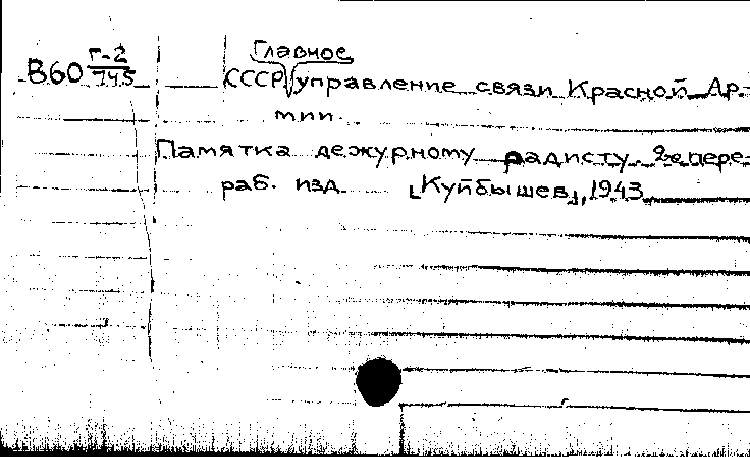 Главное
В60 Г-2/745 СССР управление связи Красной Ар-
мии.
Памятка дежурному радисту. 2е пере-
раб. изд. [Куйбышев], 1943.